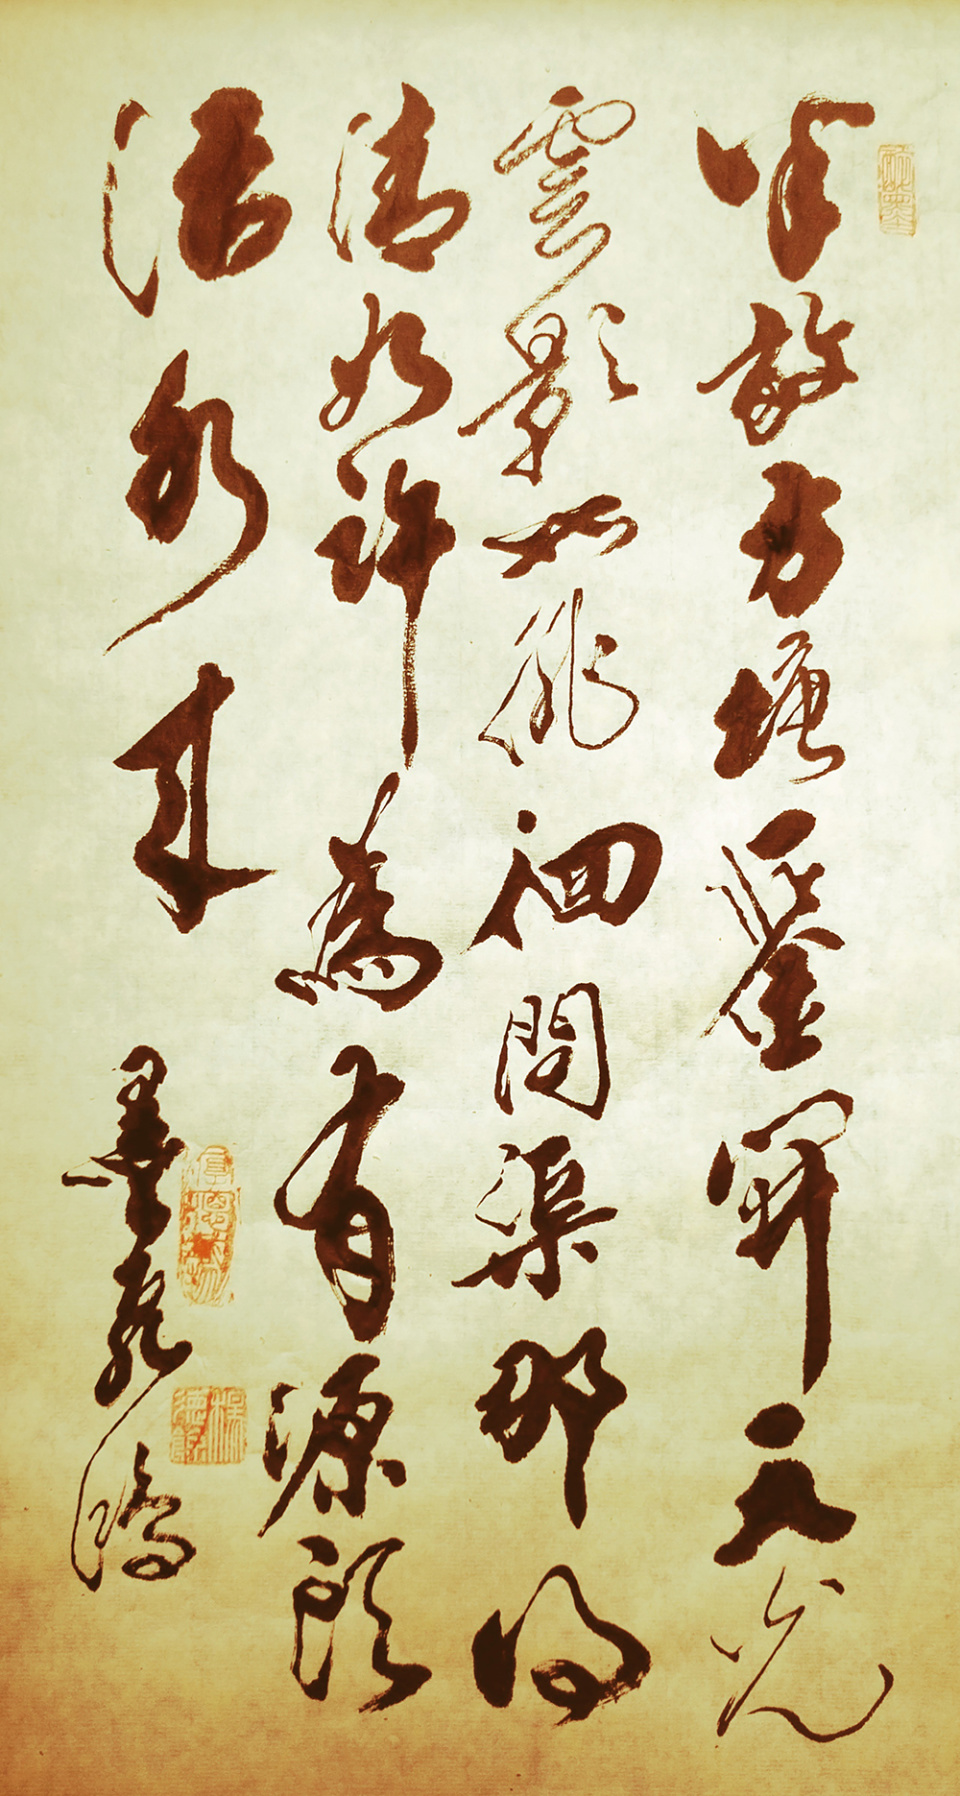 半畝方塘一鑒開天光
雲影共徘徊問渠那得
清如許為有源頭
活水來
墨